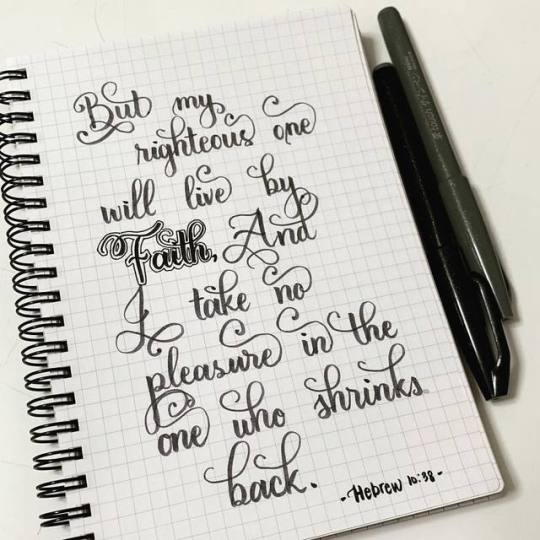 But my
righteous one
will live by
Faith, And
I take no
pleasure in the
one who shrinks
back.
- Hebrew 10:38 -